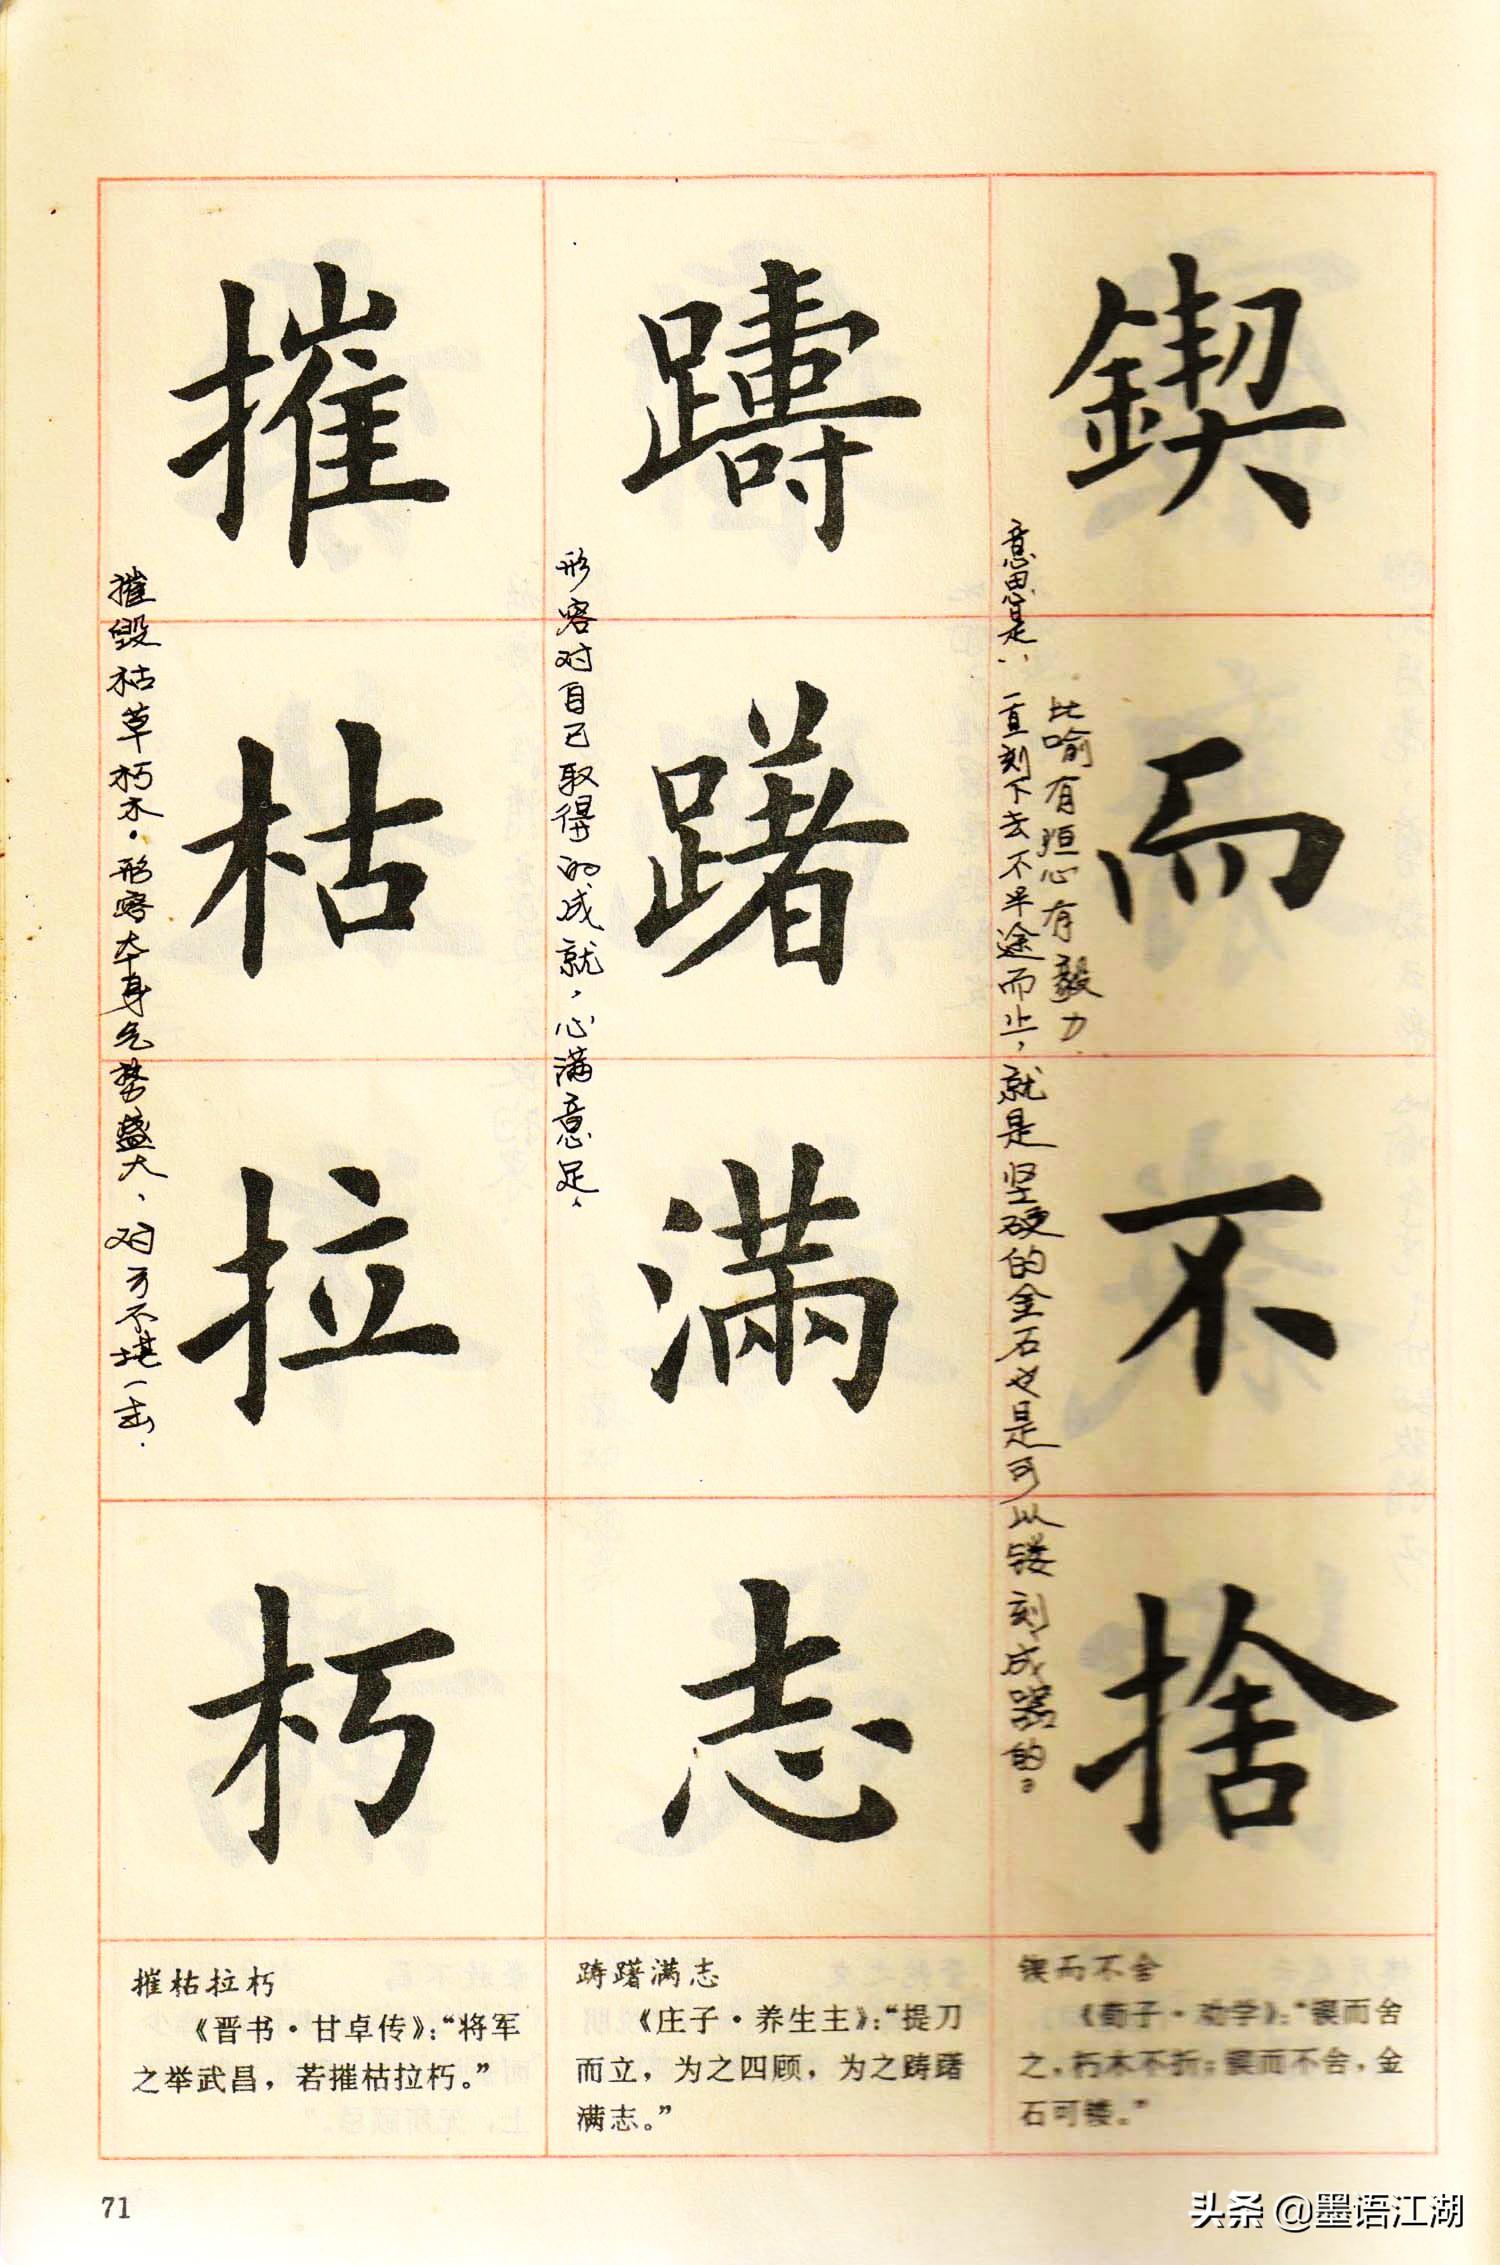 鍥而不捨
意思是：一直刻下去不半途而止，就是坚硬的金石也是可以镂刻成器的。
比喻有恒心有毅力.
躊躇滿志
形容对自己取得的成就，心满意足、
摧枯拉朽
摧毁枯草朽木.形容本身气势盛大、对方不堪一击.
摧枯拉朽
《晋书·甘卓传》：“将军
之举武昌，若摧枯拉朽。”
踌躇满志
《庄子·养生主》：“提刀
而立，为之四顾，为之踌躇
满志。”
锲而不舍
《荀子·劝学》：“锲而舍
之，朽木不折；锲而不舍，金
石可镂。”
71
头条 @墨语江湖